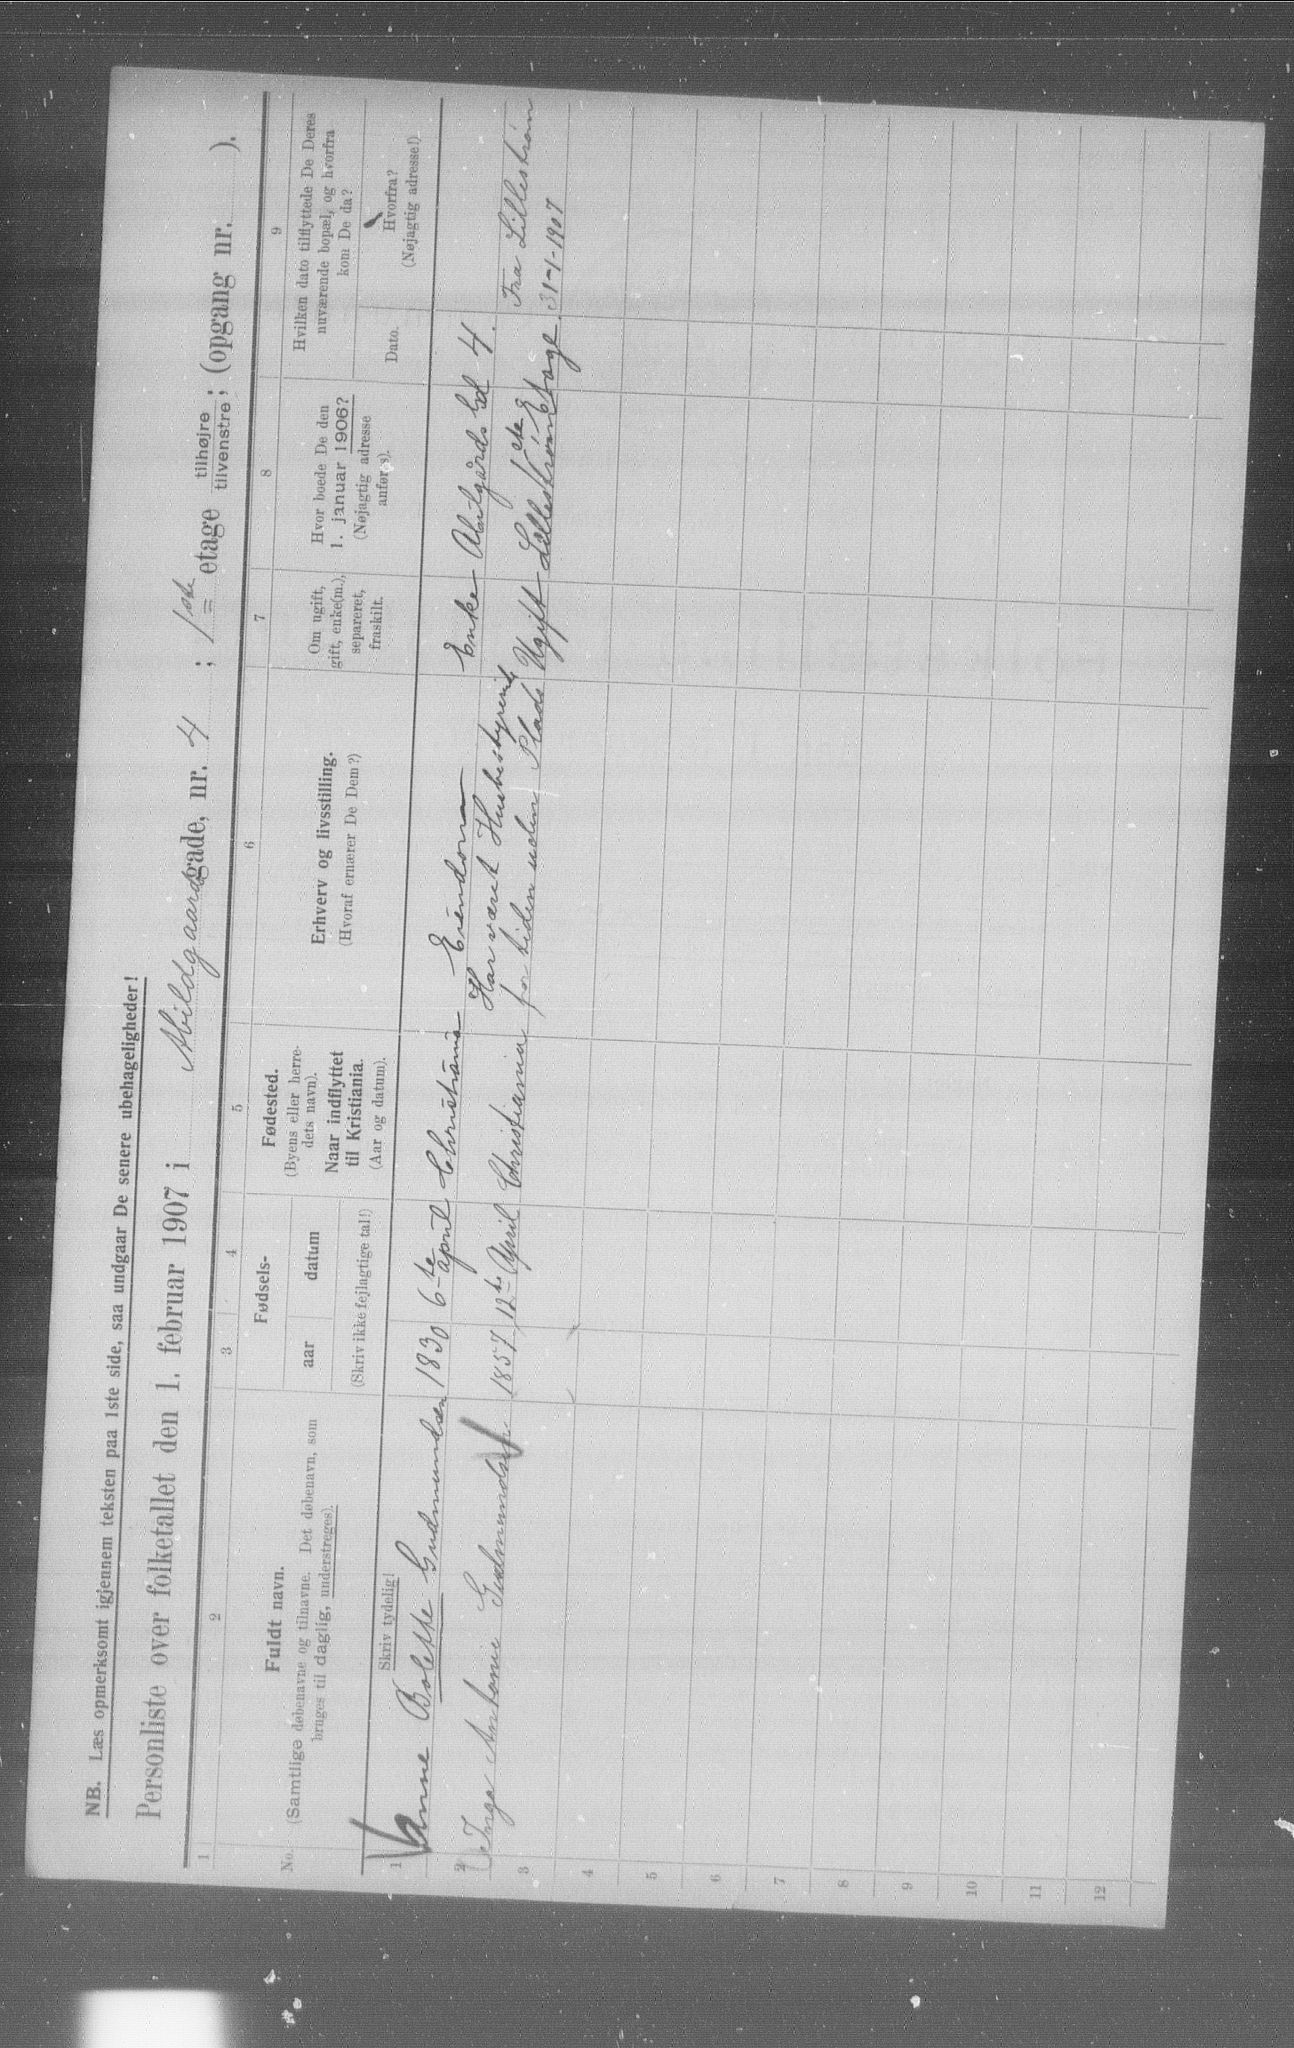 NB. Læs opmerksomt igjennem teksten paa 1ste side, saa undgaar De senere ubehageligheder!
Personliste over folketallet den 1. februar 1907 i Abildgaards gade, nr. 4; 1ste etage tilhøjre; tilvenstre; (opgang nr. ).
1 2 3 4 5 6 7 8 9
No.
Fuldt navn.
(Samtlige døbenavne og tilnavne. Det døbenavn, som
bruges til daglig, understreges).
Skriv tydelig!
Fødsels-
aar datum
(Skriv ikke fejlagtige tal!)
Fødested.
(Byens eller herre-
dets navn).
Naar indflyttet
til Kristiania.
(Aar og datum).
Erhverv og livsstilling.
(Hvoraf ernærer De Dem?)
Om ugift,
gift, enke(m.),
separeret,
fraskilt.
Hvor boede De den
1. januar 1906?
(Nøjagtig adresse
anføres).
Hvilken dato tilflyttede De Deres
nuværende bopæl, og hvorfra
kom De da?
Dato.
Hvorfra?
(Nøjagtig adresse!)
1 Anne Bolette Gudmundsen 1830 6-te april Christiania Eiendom Enke 4.
2 Inga Antonie Gudmundsen 1857 12te April Christiania Har været Husbestyrerinde
for tiden uden Plads Ugift Lillestrøm Etage. Fra Lillestrøm
31-1-1907
3
4
5
6
7
8
9
10
11
12